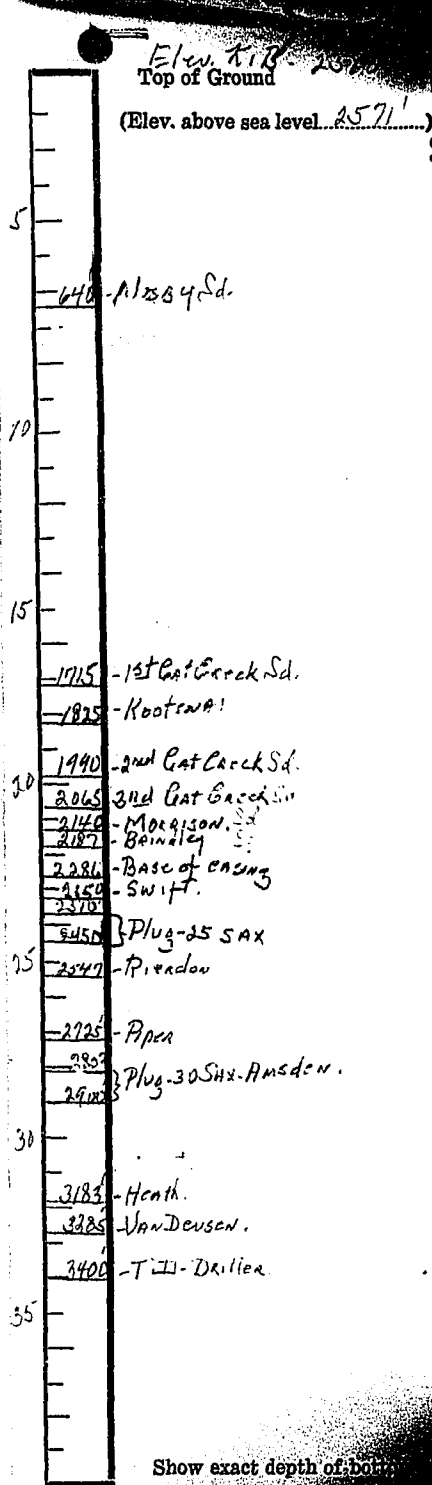 Elev. K.B.
Top of Ground
(Elev. above sea level 2571')
5
640' - Sd.
10
15
1715 - 1st Cat Creek Sd.
1825 - Kootenai
1990 - 2nd Cat Creek Sd.
20
2065 3rd Cat Creek
2140 - Morrison.
2187 -
2286 - Base of casing
- Swift.
Plug - 25 sax
25
2547 - Rierdon
2725' - Piper
Plug - 30 Sax - Amsden.
30
3183' - Heath.
3285' - Van Deusen.
3400' - T.D. - Driller
35
Show exact depth of